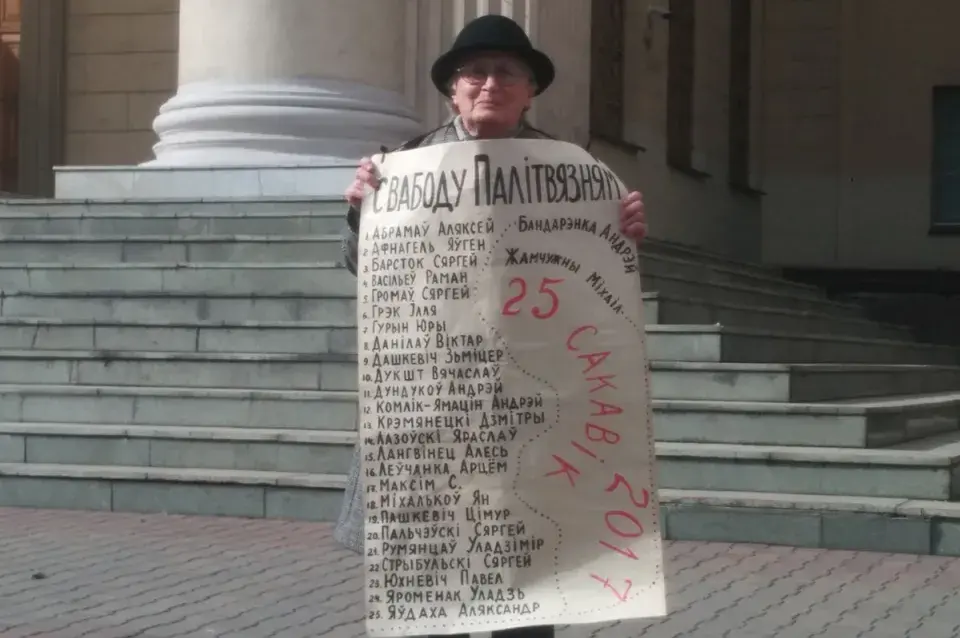 СВАБОДУ ПАЛІТВЯЗНЯМ
1. АБРАМАЎ АЛЯКСЕЙ
2. АФНАГЕЛЬ ЯЎГЕН
3. БАРСТОК СЯРГЕЙ
4. ВАСІЛЬЕЎ РАМАН
5. ГРОМАЎ СЯРГЕЙ
6. ГРЭК ІЛЛЯ
7. ГУРЫН ЮРЫ
8. ДАНІЛАЎ ВІКТАР
9. ДАШКЕВІЧ ЗЬМІЦЕР
10. ДУКШТ ВЯЧАСЛАЎ
11. ДУНДУКОЎ АНДРЭЙ
12. КОМЛІК-ЯМАЦІН АНДРЭЙ
13. КРЭМЯНЕЦКІ ДЗМІТРЫ
14. ЛАЗОЎСКІ ЯРАСЛАЎ
15. ЛАНГВІНЕЦ АЛЕСЬ
16. ЛЕЎЧАНКА АРЦЁМ
17. МАКСІМ С.
18. МІХАЛЬКОЎ ЯН
19. ПАШКЕВІЧ ЦІМУР
20. ПАЛЬЧЭЎСКІ СЯРГЕЙ
21. РУМЯНЦАЎ УЛАДЗІМІР
22. СТРЫБУЛЬСКІ СЯРГЕЙ
23. ЮХНЕВІЧ ПАВЕЛ
24. ЯРОМЕНАК УЛАДЗЬ
25. ЯЎДАХА АЛЯКСАНДР
БАНДАРЭНКА АНДРЭЙ
ЖАМЧУЖНЫ МІХАІЛ
25 САКАВІК 2017